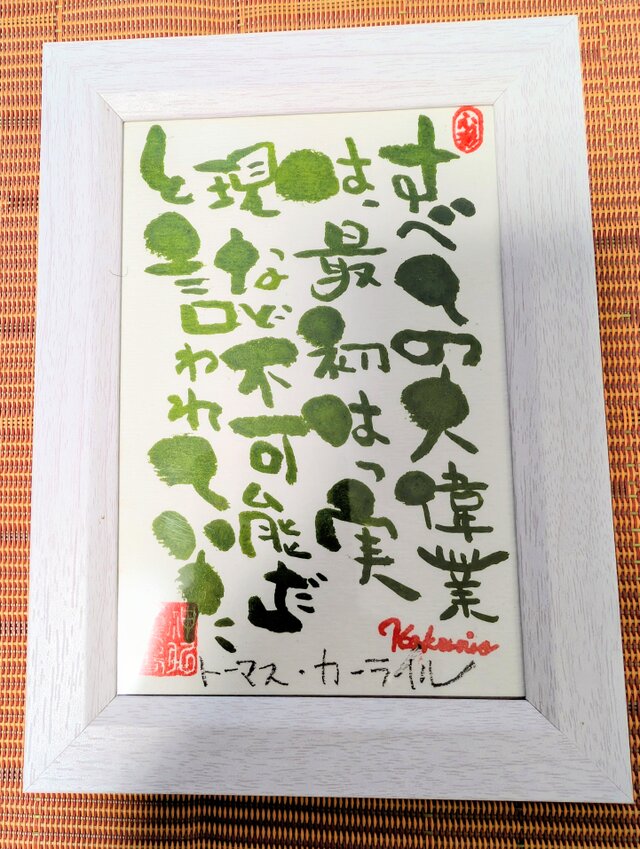 すべての大偉業
は、最初は「実
現など不可能だ
と言われていた
トーマス・カーライル